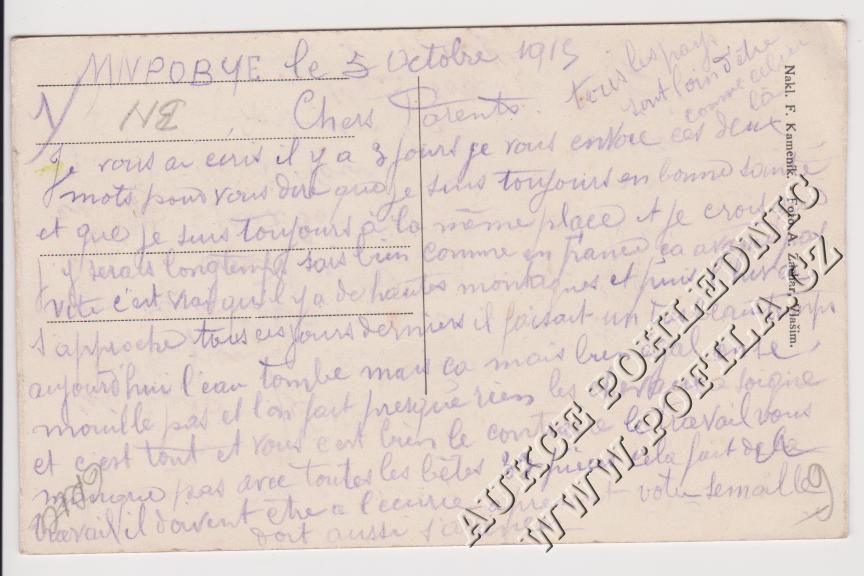 MNPOBYE le 5 Octobre 1915
Chers Parents
tous les pays
sont loin d'être
comme celui
là
Je vous ai écris il y a 3 jours je vous envoie ces deux
mots pour vous dire que je suis toujours en bonne santé
et que je suis toujours à la même place et je crois
j'y serais longtemps sais bien comme en france ca avance pas
vite c'est vrai qu'il y a de hautes montagnes et puis
s'approche tous ces jours derniers il faisait un temps
aujourd'hui l'eau tombe mais ca mais bien égal on se
mouille pas et l'on fait presque rien les chevaux a soigne
et c'est tout et vous c'est bien le contraire le travail vous
manque pas avec toutes les bêtes et puis cela fait de la
travail il doivent être a l'écurie votre semaille
doit aussi
NE
9
Nakl. F. Kameník. Foto A. Zachar, Vlašim.
AUKCE POHLEDNIC
WWW.POETILA.CZ